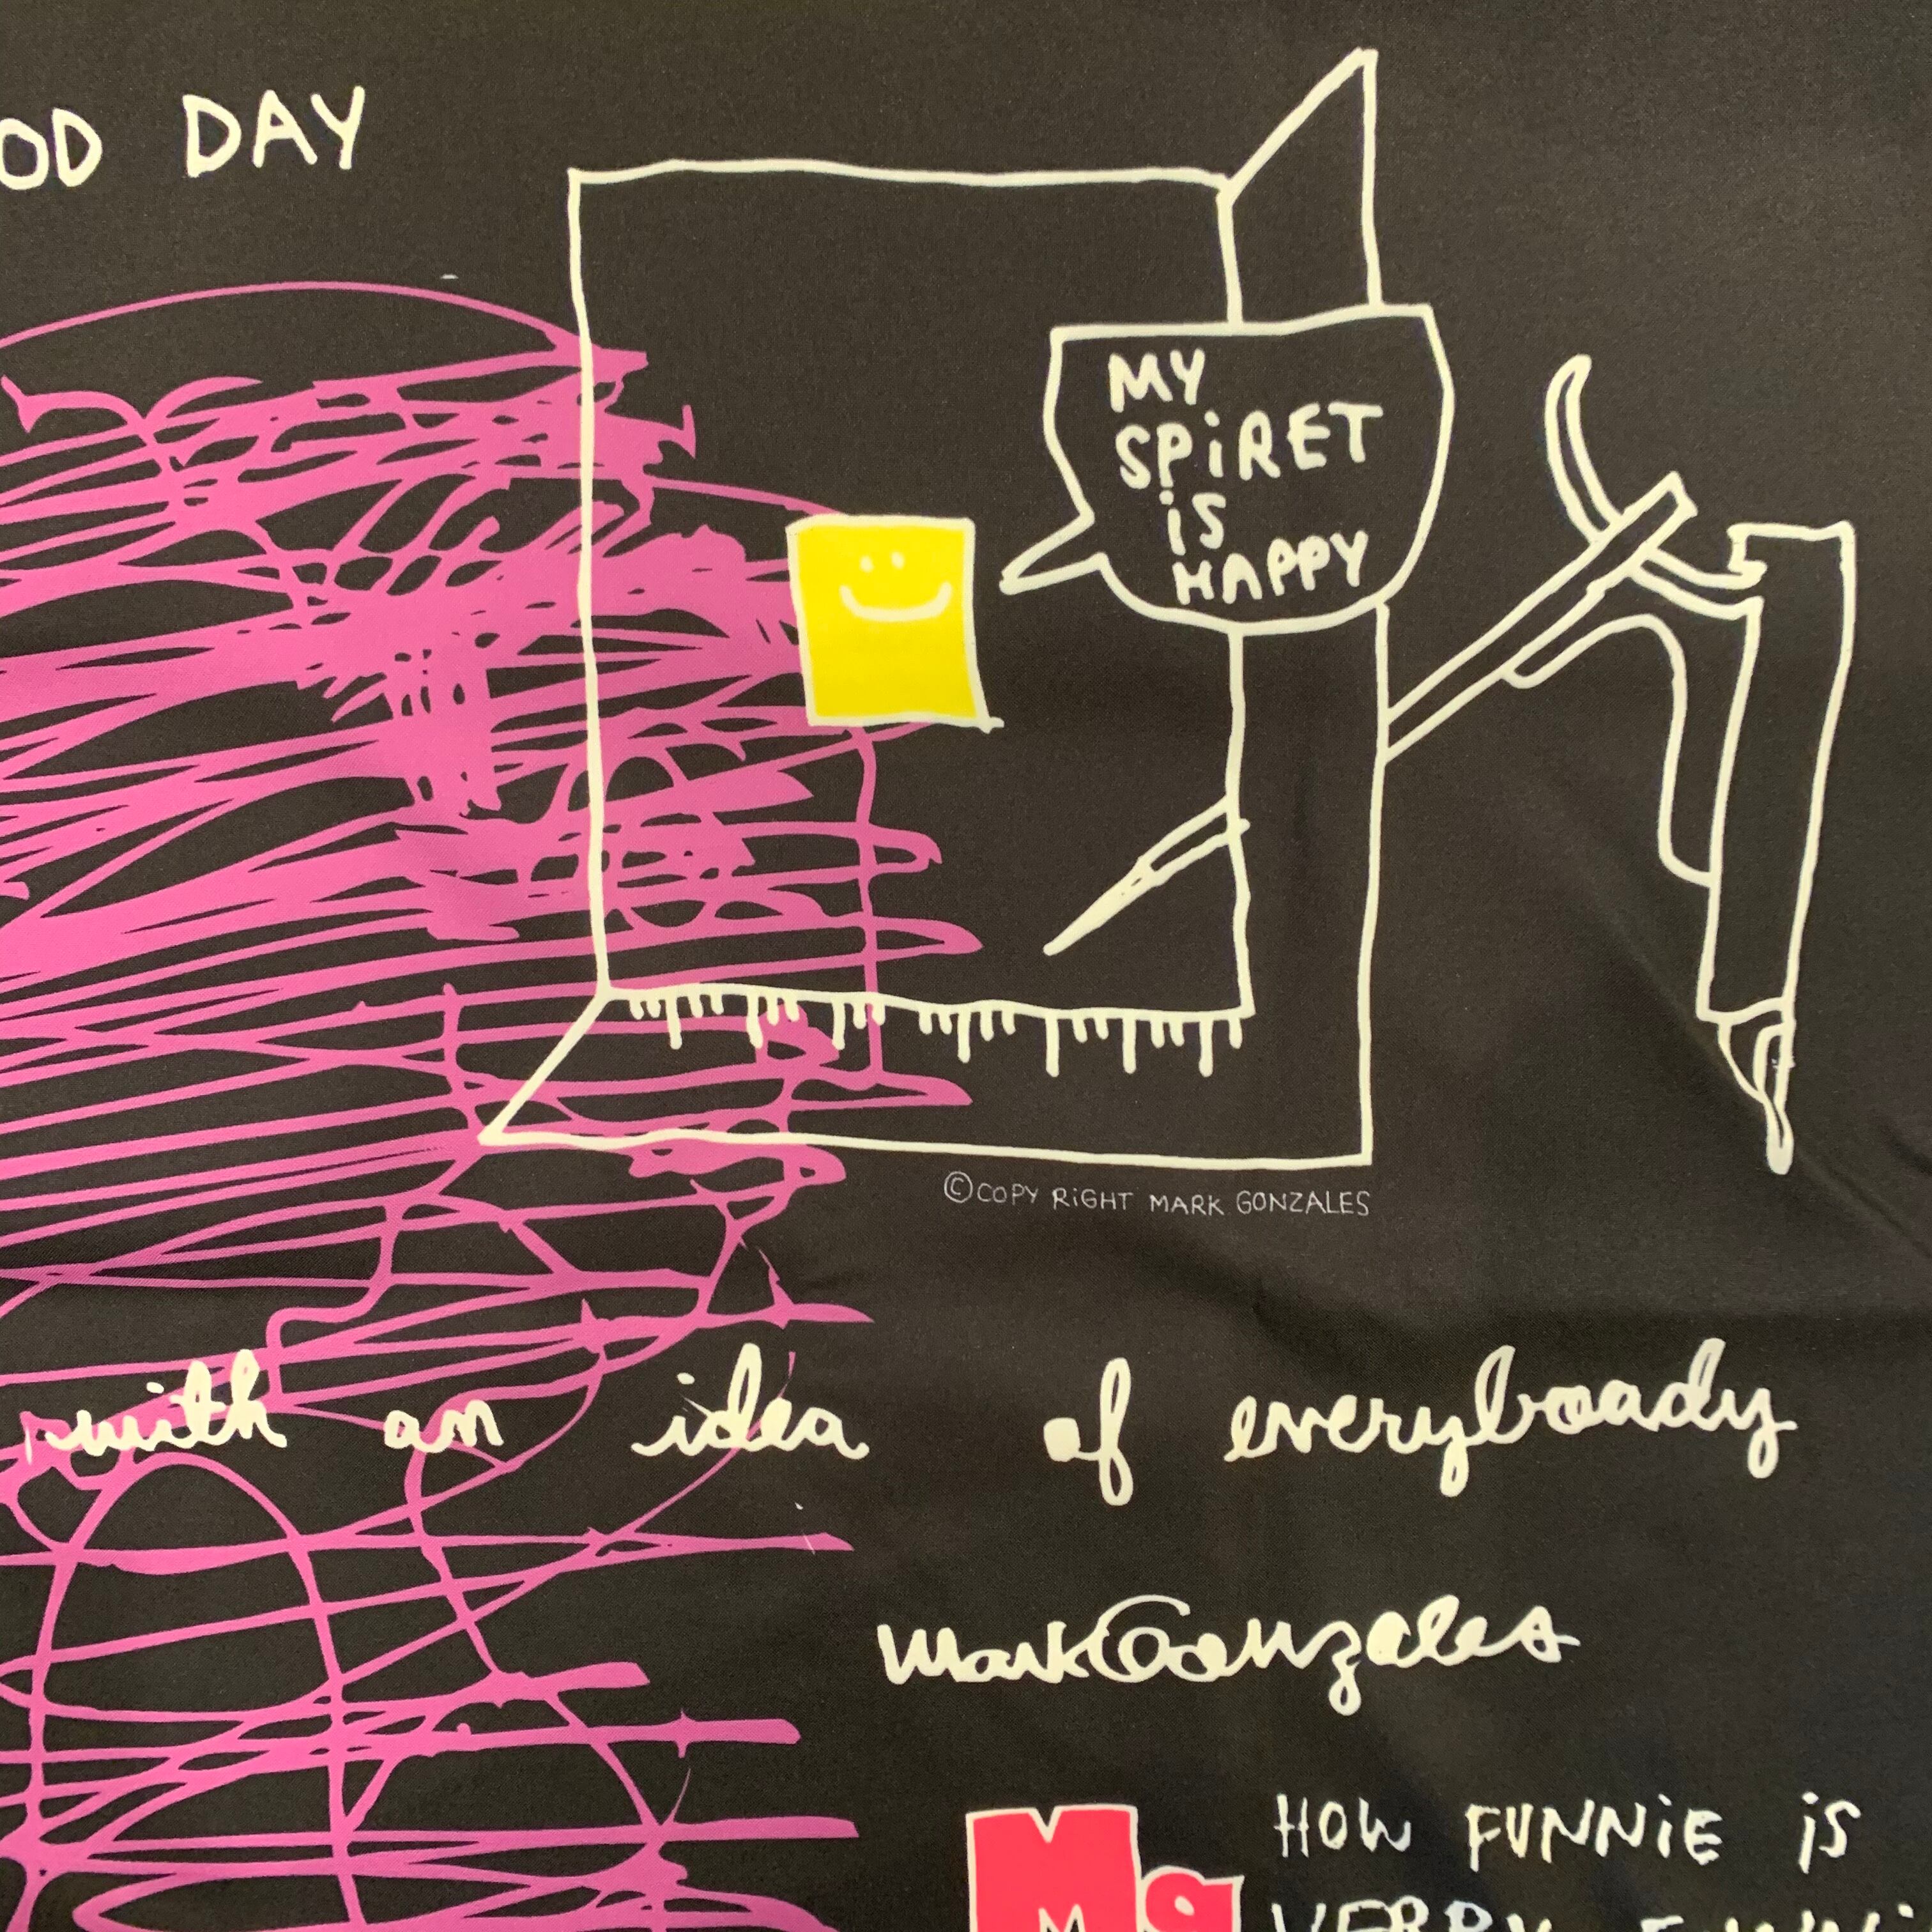 OD DAY
MY
SPiRET
iS
HAPPY
©COPY RiGHT MARK GONZALES
with an idea of everyboady
MarkGonzales
HOW FUNNiE iS
VERRY